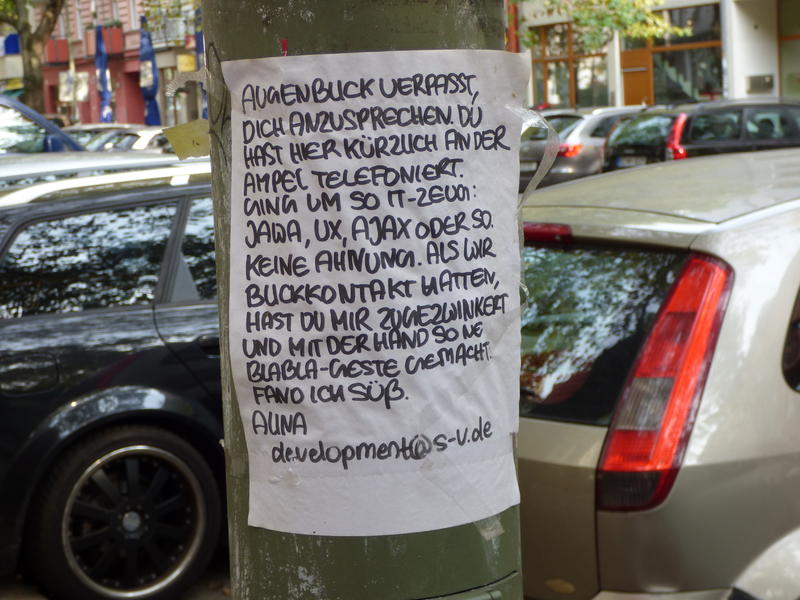 AUGENBLICK VERPASST,
DICH ANZUSPRECHEN. DU
HAST HIER KÜRZLICH AN DER
AMPEL TELEFONIERT.
GING UM SO IT-ZEUG:
JAWA, UX, AJAX ODER SO.
KEINE AHNUNG. ALS WIR
BLICKKONTAKT HATTEN,
HAST DU MIR ZUGEZWINKERT
UND MIT DER HAND SO NE
BLABLA-GESTE GEMACHT.
FAND ICH SÜß.
ALINA
de.velopment@s-v.de